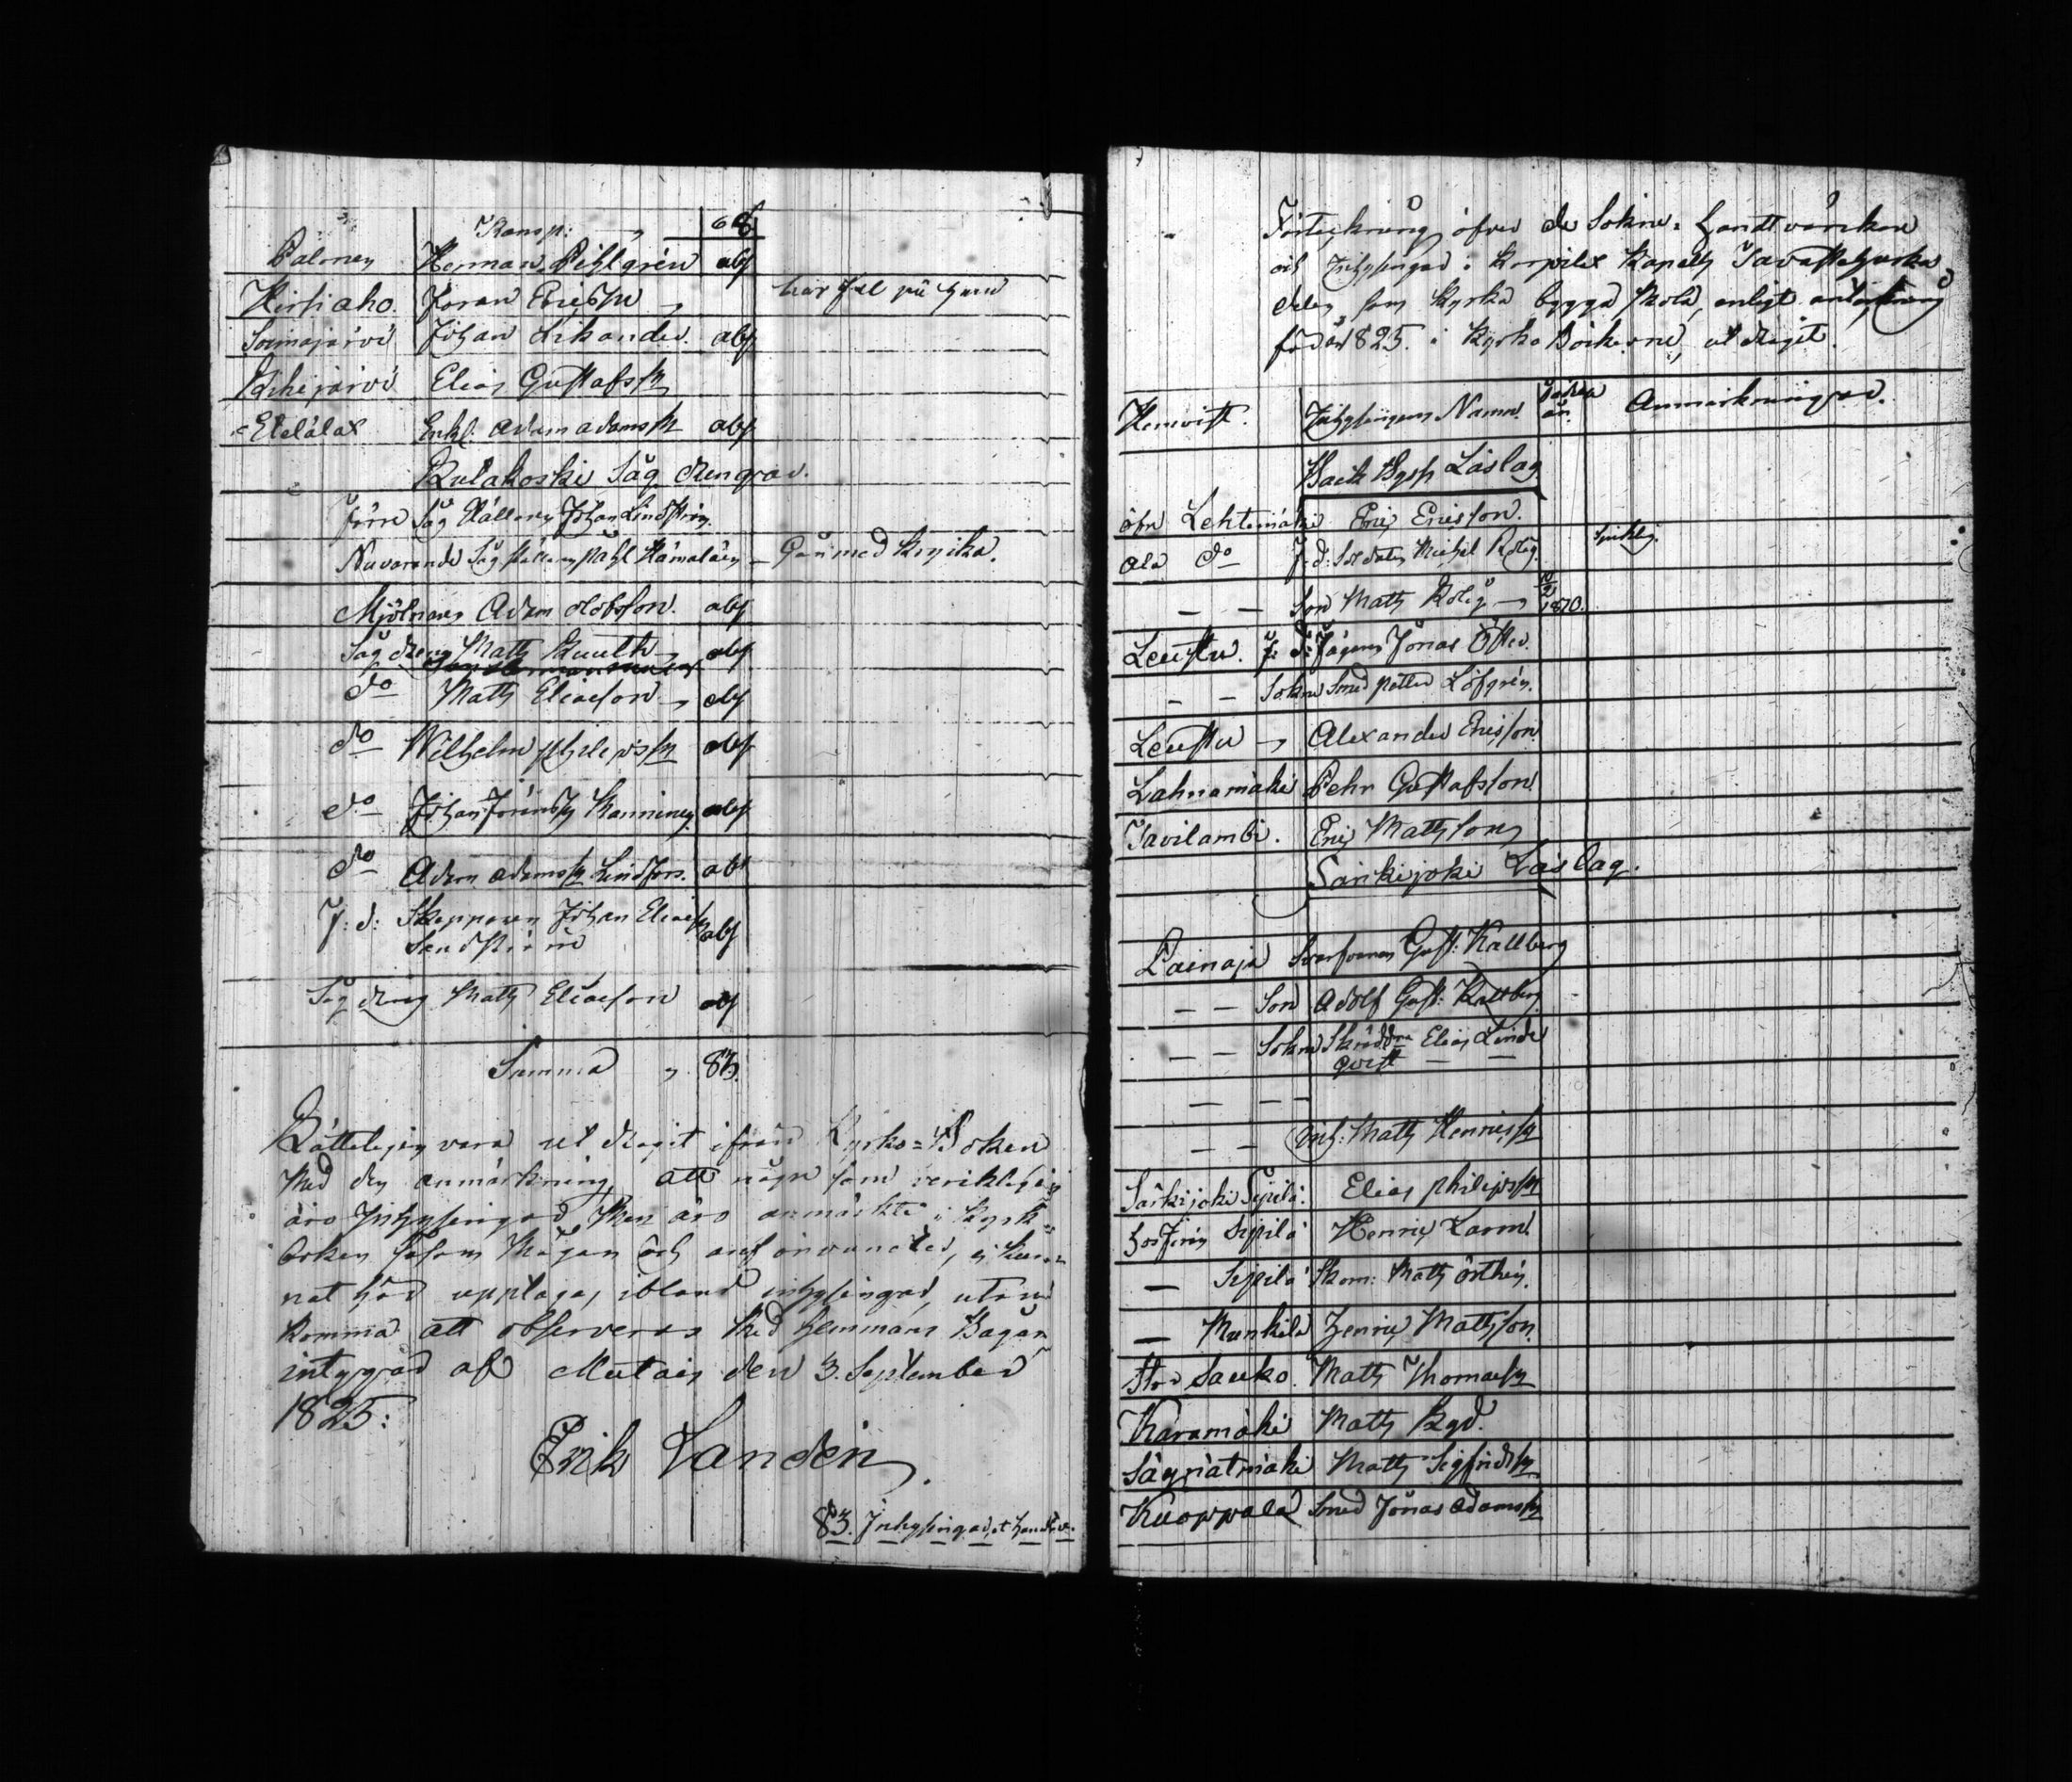 Transp: 68
Palonen Herman Pihlgrén abs
Hirsiaho. Joran Ericsson har fel på hand
Soimajärvi Johan Lekander. abs
Kihijärvi Elias Gustafsson
Etelälax Enkl. Adam Adamsson abs
Kulakoski Såg drengar.
Förre Såg Ställaren Johan Lindström
Nuvarande Såg ställaren Påhl Hämäläin – Går med krycka.
Mjölnaren Adam Olofsson. abs
Såg dreng Matts Knuuth abs
do Matts Eliaesson abs
do Wilhelm Philipsson abs
do Johan Jöransson Manninen abs
do Adam Adamsson Lindfors. abs
F: d: Skepparen Johan Eliaesson
Sandström abs
Såg dreng Matts Eliaesson abs
Summa 83.
Rätteligen vara ut dragit ifrån Kyrko=Boken
Med den anmärkning, att någre som verkligen
äro Inhysingar, Men äro anmärkte i kyrk=
boken såsom Mågar och anförvandter, ej kun=
nat här upptagas ibland inhysingar, utan
komma att observeras Med hemmans Bågar
intygar af Metais den 3. September
1825:
Erik Landén.
83. Inhysingar, et handtv.
Förteckning öfver de Sokne= Handtvärkare
och Inhysingar i Korpilax Kapells Tavastehus
delen, som Kyrka bygga skola, enligt anteckning
för år 1825. i Kyrko Böckerne, ut dragit.
Hemvist. Inhysingens Namn. Födelse år. Anmärkningar.
Läslag
öfre Lehtimäki Eric Ericsson.
Ala do f. d. Soldaten Michel Rolig. Sjuklig.
– – Son Matts Rolig 10/2 1810.
Leustu. f: d: Jägaren Jonas Öster.
– – Sokne Smed Petter Löfgrén.
Leustu Alexander Ericsson
Lahnamäki Pehr Gustafsson
Tavilambi. Eric Mattsson
Särkijoki Läslag.
Lainaja Svarfvaren Gust: Källberg
– – Son Adolf Gust: Källberg
– – Sokne Skräddre Elias Linde
qvist – –
– – –
– – Inh: Matts Henricsson
Särkijoki Sipilä: Elias Philipsson
Sipilä Henric Larm
– Sipilä Skom: Matts Örthén.
– Munkila Henric Mattsson
Stor Sauko. Matts Thomasson
Karamäki Matts Ryd.
Matts Sigfridsson
Kuoppala Smed Jonas Adamsson